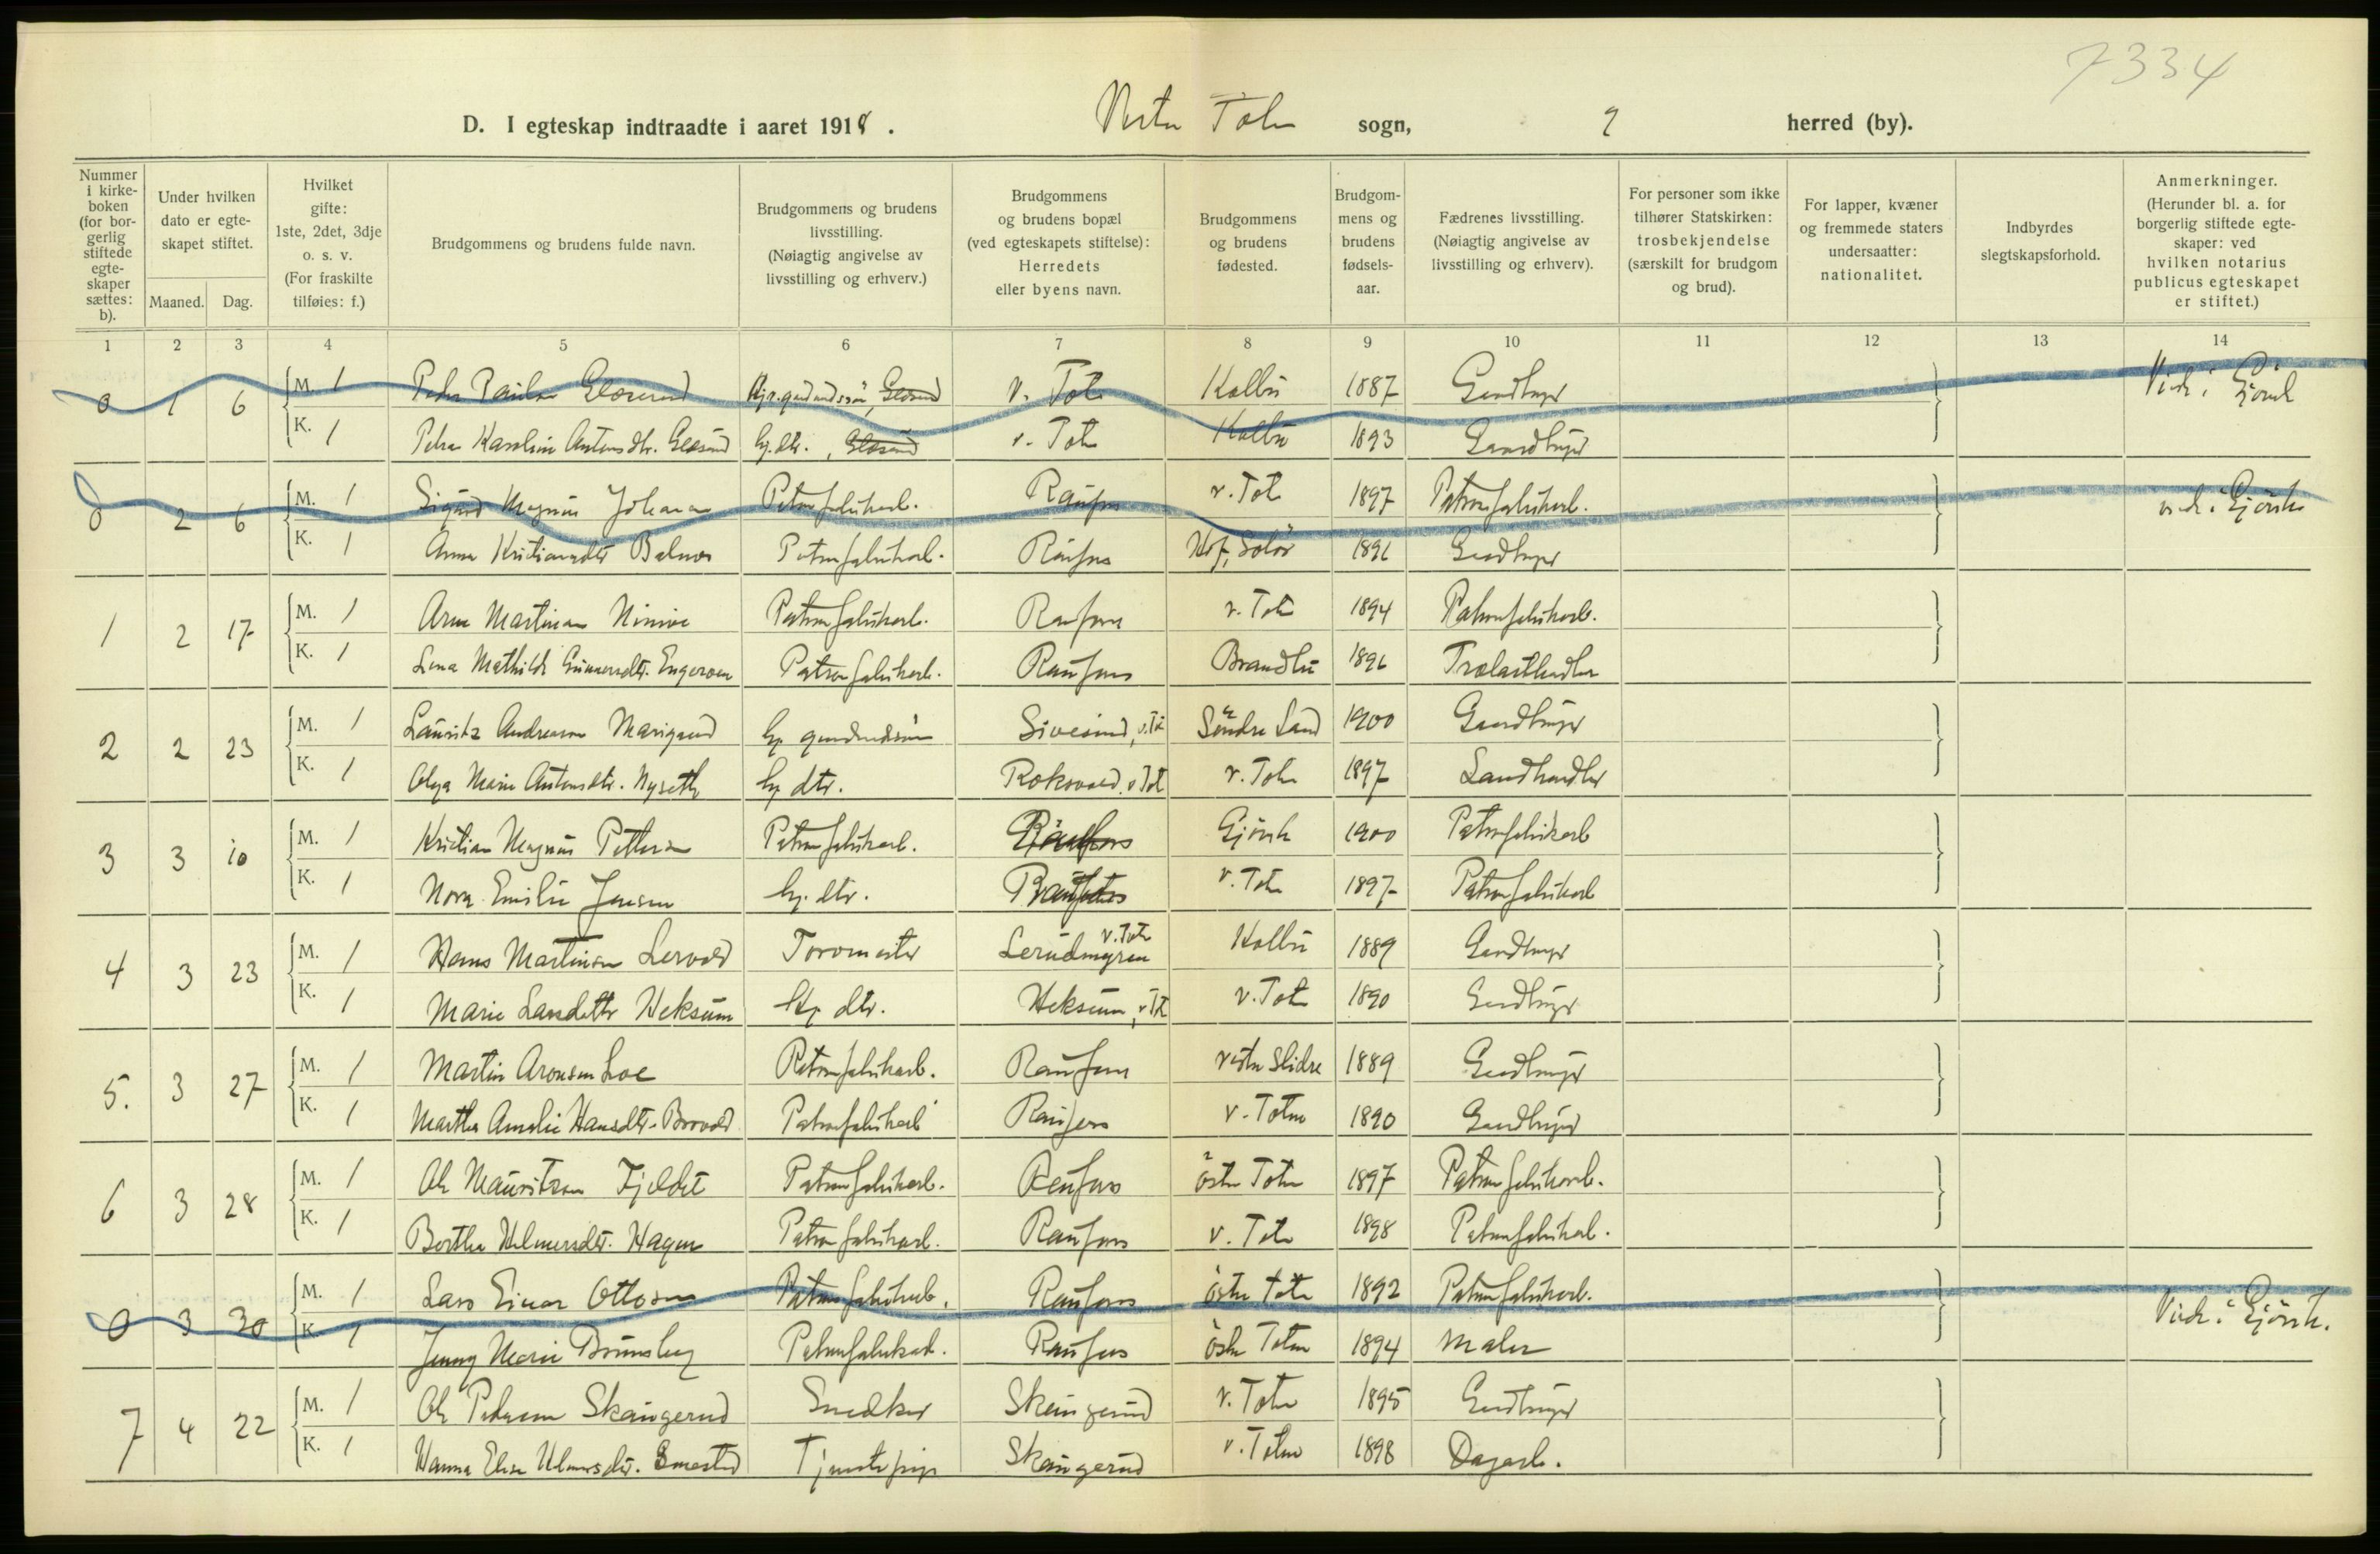 7334
D. I egteskap indtraadte i aaret 1918. Vestre Toten sogn, herred (by).
Nummer i kirkeboken (for borgerlig stiftede egteskaper sættes: b).
Under hvilken dato er egteskapet stiftet.
Maaned. Dag.
Hvilket gifte: 1ste, 2det, 3dje o. s. v. (For fraskilte tilføies: f.)
Brudgommens og brudens fulde navn.
Brudgommens og brudens livsstilling. (Nøiagtig angivelse av livsstilling og erhverv.)
Brudgommens og brudens bopæl (ved egteskapets stiftelse): Herredets eller byens navn.
Brudgommens og brudens fødested.
Brudgommens og brudens fødselsaar.
Fædrenes livsstilling. (Nøiagtig angivelse av livsstilling og erhverv).
For personer som ikke tilhører Statskirken: trosbekjendelse (særskilt for brudgom og brud).
For lapper, kvæner og fremmede staters undersaatter: nationalitet.
Indbyrdes slegtskapsforhold.
Anmerkninger. (Herunder bl. a. for borgerlig stiftede egteskaper: ved hvilken notarius publicus egteskapet er stiftet.)
1 2 3 4 5 6 7 8 9 10 11 12 13 14
0 1 6 M. 1 Peder Paulsen v. Toten Kolbu 1887 Gardbruger Viede i Gjövik
K. 1 Petra Karoline Antonsdtr. hj. dtr. v. Toten Kolbu 1893 Gaardbruger
0 2 6 M. 1 Sigurd Magnus Johansen Patronfabrikarb. Raufoss v. Toten 1897 Patronfabrikarb. viede i Gjövik
K. 1 Anna Kristiansdtr Patronfabrikarb. Raufoss Hof, Solör 1896 Gardbruger
1 2 17 M. 1 Arne Martinsen Patronfabrikarb. Raufoss v. Toten 1894 Patronfabrikarb.
K. 1 Lina Mathilde Gunnersdtr. Engeroen Patronfabrikarb. Raufoss Brandbu 1896 Trælasthandler
2 2 23 M. 1 Lauritz Andreassen hj. Sivesind, v. Tot. Söndre Land 1900 Gaardbruger
K. 1 Olga Marie Antonsdtr. Nyseth hj. dtr. Roksvold, v. Tot. v. Toten 1897 Landhandler
3 3 10 M. 1 Kristian Magnus Pettersen Patronfabrikarb. Raufoss Gjövik 1900 Patronfabrikarb
K. 1 Nora Emilie Jensen hj. dtr. Raufoss v. Toten 1897 Patronfabrikarb
4 3 23 M. 1 Hans Martinsen Lervold Lerudmyren v. Toten Kolbu 1889 Gardbruger
K. 1 Marie Larsdatter Heksum Hj. dtr. Heksum, v. Tot. v. Toten 1890 Gardbruger
5. 3 27 M. 1 Martin Aronsen Loe Patronfabrikarb. Raufoss Vestre Slidre 1889 Gardbruger
K. 1 Martha Amalie Hansdtr. Brovold Patronfabrikarb Raufoss v. Toten 1890 Gardbruger
6 3 28 M. 1 Ole Mauritzen Patronfabrikarb. Raufoss östre Toten 1897 Patronfabrikarb.
K. 1 Berthe Hilmersdtr. Hagen Patronfabrikarb. Raufoss v. Toten 1898 Patronfabrikarb.
0 3 30 M. 1 Lars Einar Ottosen Patronfabrikarb. Raufoss östre Toten 1892 Patronfabrikarb. Viede i Gjövik.
K. 1 Jenny Marie Patronfabrikarb. Raufoss östre Toten 1894 Maler
7 4 22 M. 1 Ole Pedersen Skaugerud Snedker Skaugerud v. Toten 1895 Gardbruger
K. 1 Hanna Elise Tjenestepige Skaugerud v. Toten 1898 Dagarb.